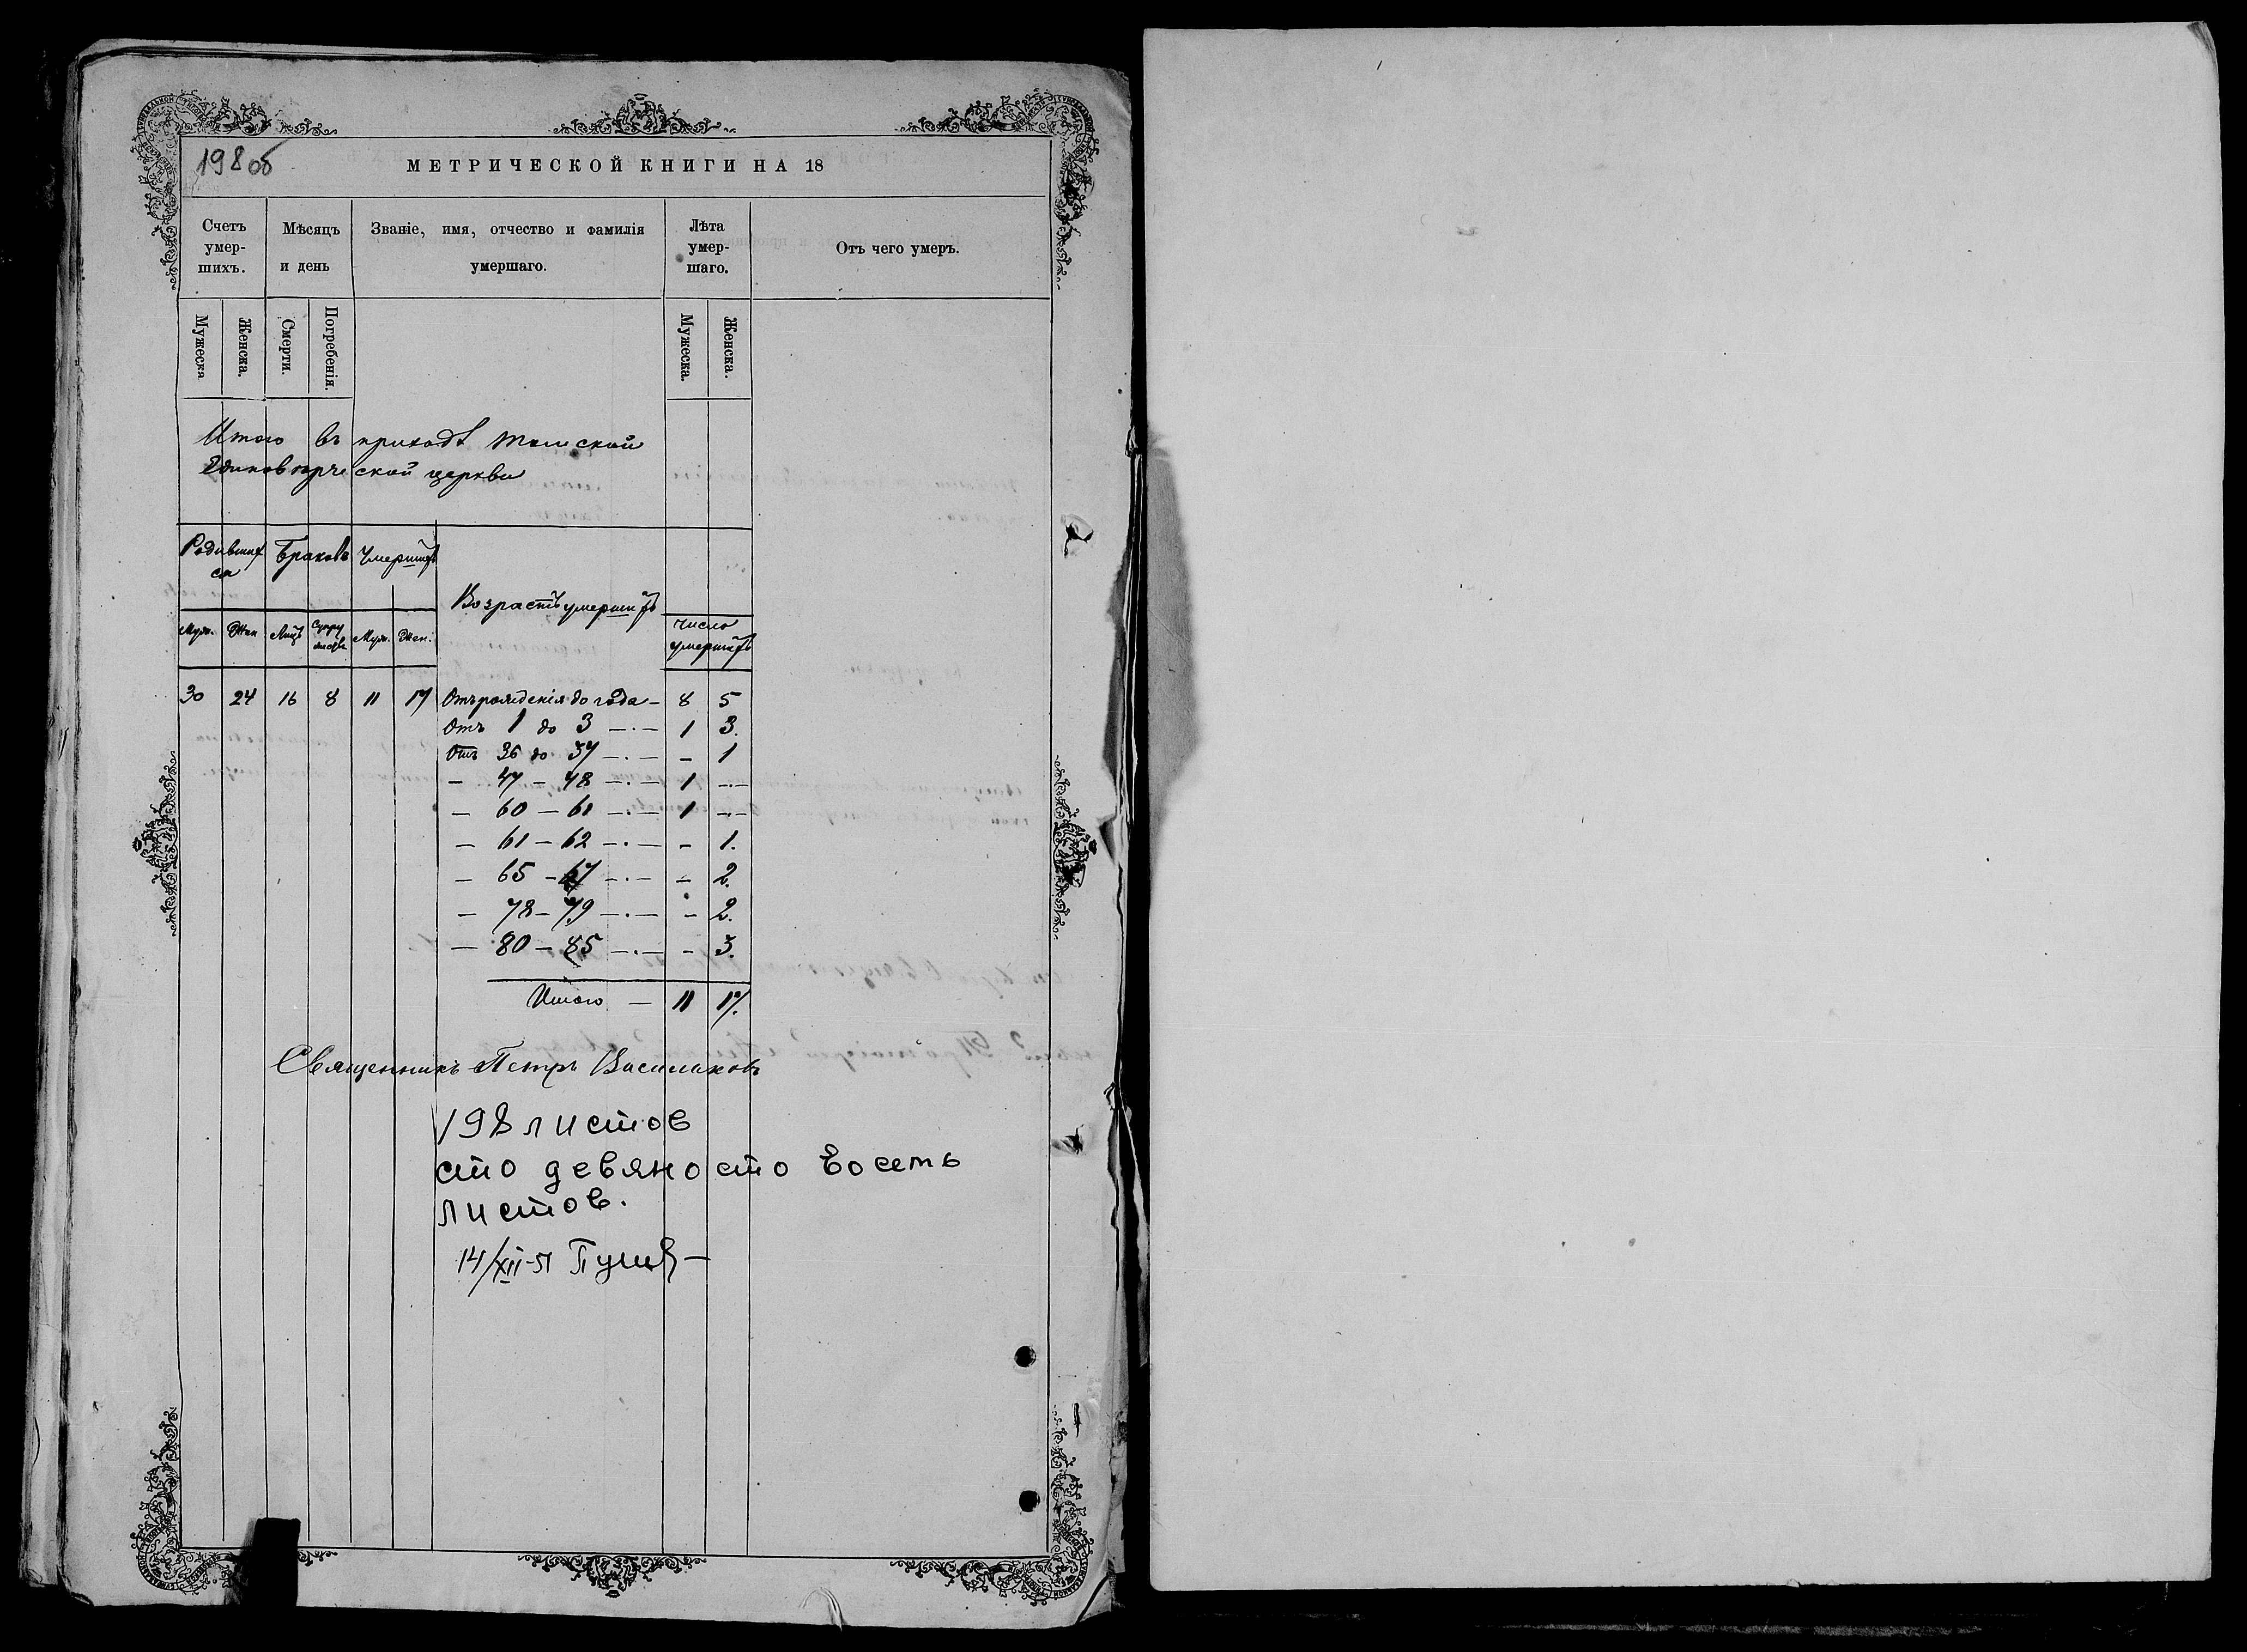 198 об
МЕТРИЧЕСКОЙ КНИГИ НА 18
Счетъ умер- шихъ. Мѣсяцъ и день Званіе, имя, отчество и фамилія умершаго. Лѣта умер- шаго. Отъ чего умеръ.
Мужеска Женска. Смерти. Погребенія. Мужеска. Женска.
Итого въ приходѣ
Единовѣрческой церкви
Родившихся Браковъ Умершихъ
Возрастъ умершихъ
Муж. Жен Лицъ Супружествъ Муж. Жен. Число умершихъ
30 24 16 8 11 17 Отъ рожденія до года – 8 5
Отъ 1 до 3 –·– 1 3.
Отъ 36 до 37 –·– – 1
– 47 – 48 –·– 1 –·–
– 60 – 61 –·– 1 –·–
– 61 – 62 –·– – 1.
– 65 – 67 –·– – 2.
– 78 – 79 –·– – 2.
– 80 – 85 –·– – 3.
Итого – 11 17.
Священникъ Петръ Васильковъ
198 листов
сто девяносто восемь
листов.
14/XII-51